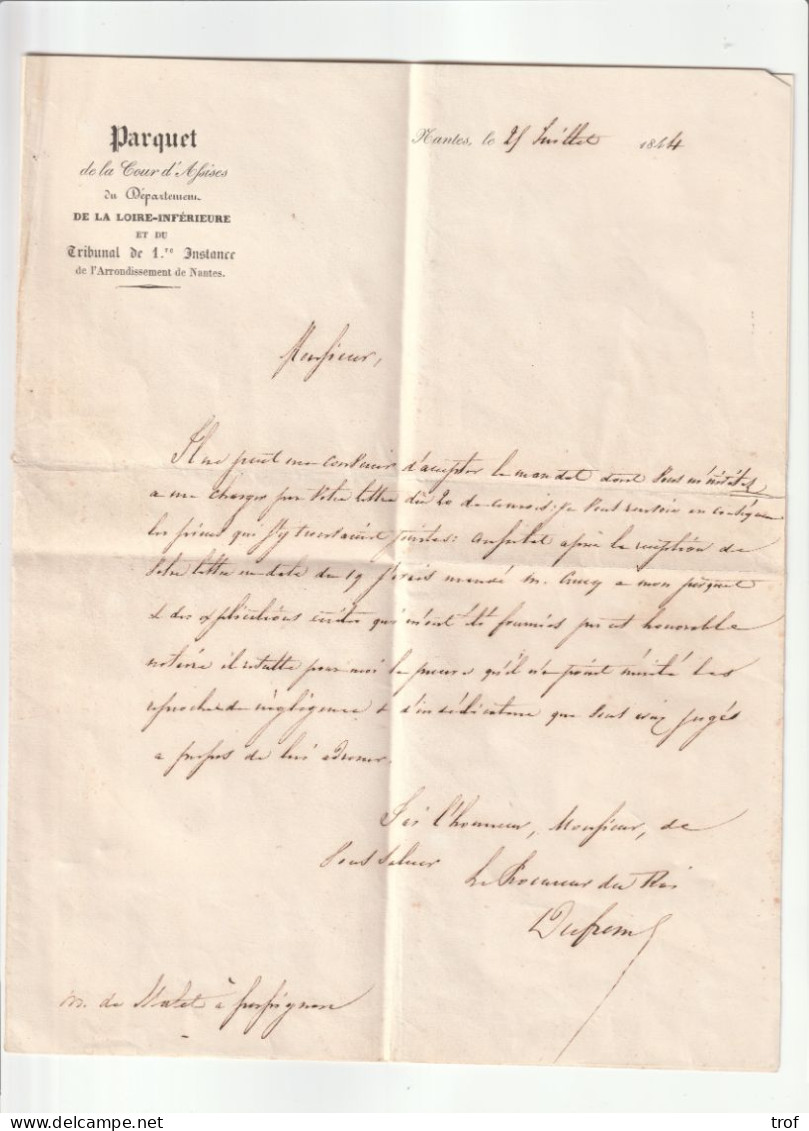 Parquet
de la Cour d'Assises
du Département
DE LA LOIRE-INFÉRIEURE
ET DU
Tribunal de 1.re Instance
de l'Arrondissement de Nantes.
Nantes, le 25 Juillet 1844
Monsieur,
Il ne peut me convenir d'accepter le mandat dont vous m'
a me charger par votre lettre du 20 de ce mois; je vous renvoie en conséquence
les pièces qui s'y trouvaient jointes: aussitot après la réception de
votre lettre en date du 19 j'avais mandé m. Crucy a mon parquet
& des explications écrites qui m'ont été fournies par cet honorable
notaire il résulte pour moi la preuve qu'il n'a point mérité les
reproches de négligence & d'indélicatesse que vous avez jugés
a propos de lui adresser.
J'ai l'honneur, Monsieur, de
vous saluer
Le Procureur du Roi
m. de à Perpignan
delcampe.net
trof